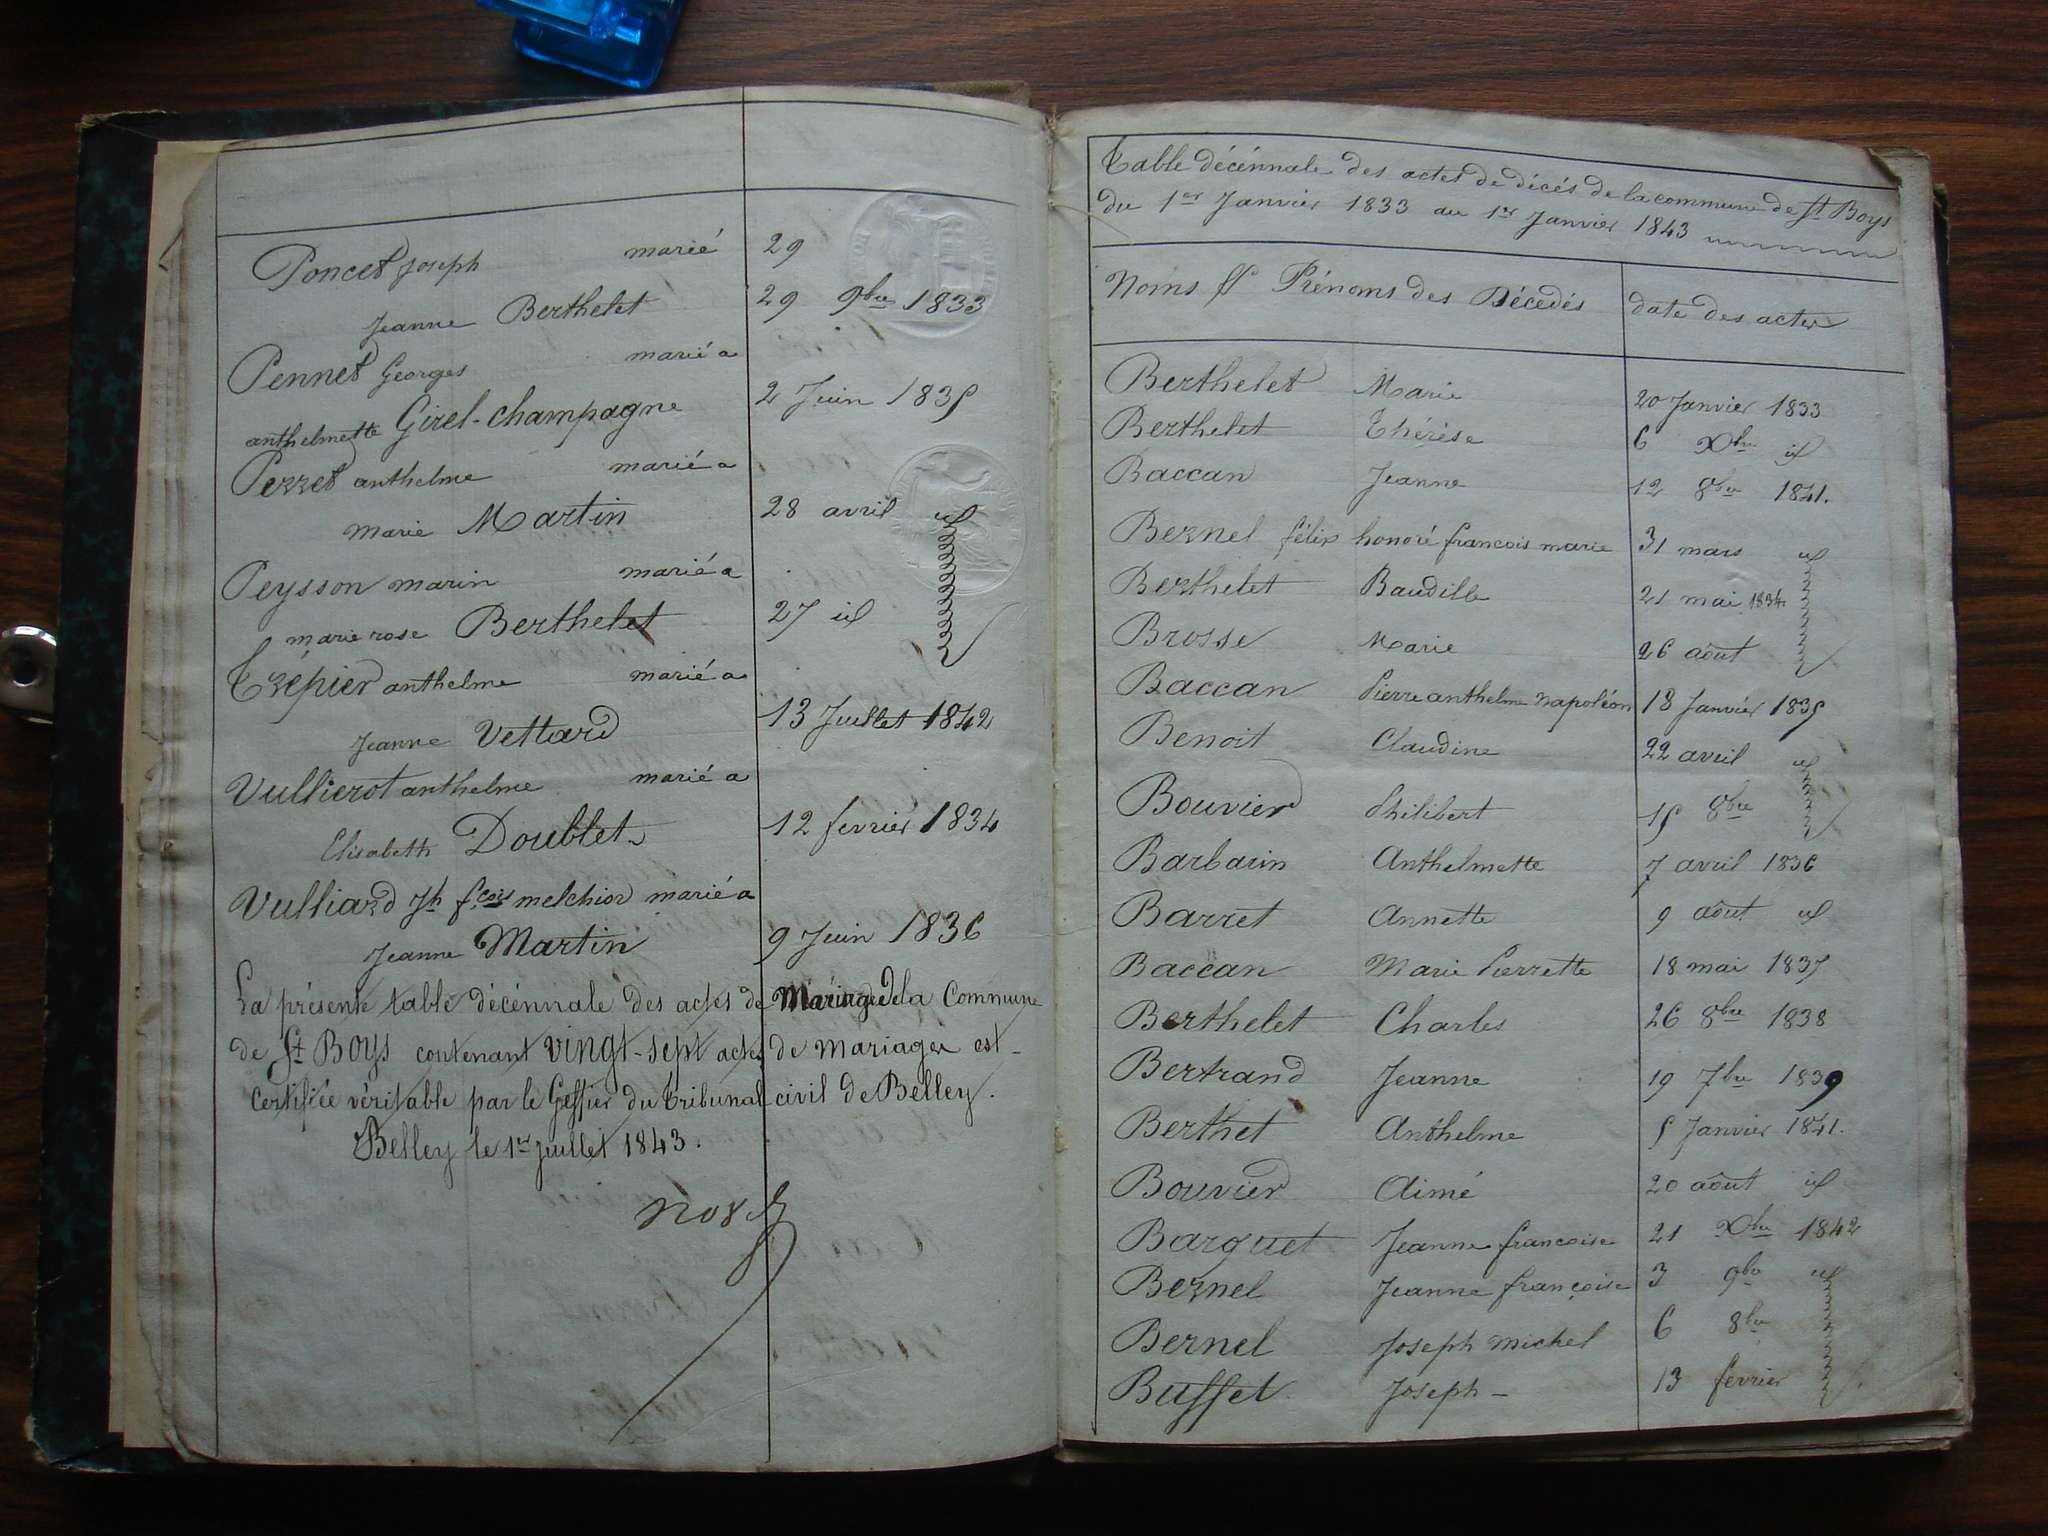 Poncet Joseph marié 29
Jeanne Berthelet 29 9bre 1833
Pennet Georges marié a
anthelmette Girel-champagne 2 Juin 1835
Perret anthelme marié a
marie Martin 28 avril id
Peysson marin marié a
marie rose Berthelet 27 id
Trépier anthelme marié a
Jeanne Vettard 13 Juillet 1842
Vullierot anthelme marié a
Elisabeth Doublet 12 fevrier 1834
Vulliard Jh fcois melchior marié a
Jeanne Martin 9 Juin 1836
La présente table décénnale des actes de Mariage de la Commune
de St Boys contenant vingt-sept actes de mariages est
certifiée véritable par le Geffier du tribunal civil de Belley.
Belley le 1er Juillet 1843.
Table décénnale des actes de décés de la commune de St Boys
du 1er Janvier 1833 au 1er Janvier 1843
Noms & Prénoms des Décedés date des actes
Berthelet Marie 20 Janvier 1833
Berthelet Thérèse 6 Xbre id
Baccan Jeanne 12 8bre 1841.
Bernel félix honoré francois marie 31 mars id
Berthelet Baudille 21 mai 1834
Brosse Marie 26 aôut
Baccan Pierre anthelme napoléon 18 Janvier 1835
Benoit Claudine 22 avril id
Bouvier Philibert 15 8bre
Barbarin Anthelmette 7 avril 1836
Barret Annette 9 aôut id
Baccan Marie Pierrette 18 mai 1837
Berthelet Charles 26 8bre 1838
Bertrand Jeanne 19 7bre 1839
Berthet Anthelme 5 Janvier 1841.
Bouvier Aimé 20 aôut id
Barquet Jeanne francoise 21 Xbre 1842
Bernel Jeanne françoise 3 9bre id
Bernel Joseph michel 6 8bre
Buffet Joseph - 13 fevrier